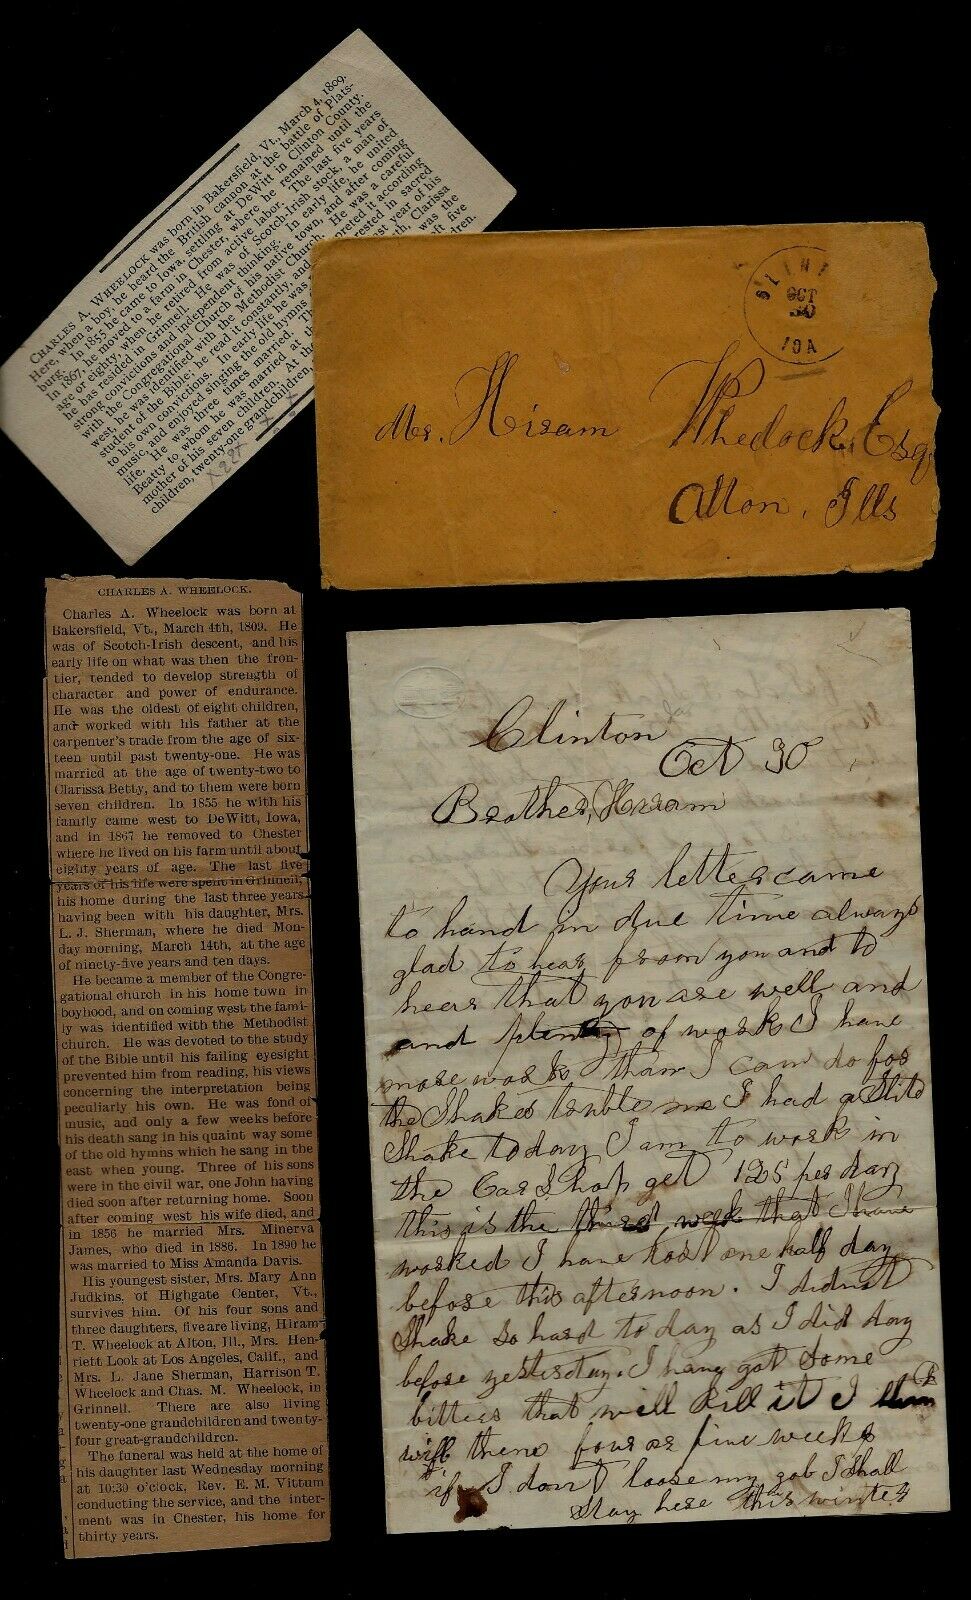 CHARLES A. WHEELOCK was born in Bakersfield, Vt., March 4, 1809.
Here, when a boy, he heard the British cannon at the battle of Platts-
burg. In 1855 he came to Iowa, settling at DeWitt in Clinton County.
In 1867, he moved to a farm in Chester, where he remained until the
age of eighty, when he retired from active labor. The last five years
he has resided in Grinnell. He was of Scotch-Irish stock, a man of
strong convictions and independent thinking. In early life, he united
with the Congregational Church of his native town, and after coming
west, he was identified with the Methodist Church. He was a careful
student of the Bible; he read it constantly, and interpreted it according
to his own convictions. In early life he was interested in sacred
music, and enjoyed singing the old hymns last year of his
life. He was three times married. Clarissa
Beatty to whom he was married at was the
mother of his seven children. At th left five
children, twenty-one grandchildren, dren.
CLINT
OCT
30
IOA
Mr. Hiram Whelock, Esq
Alton, Ills
CHARLES A. WHEELOCK.
Charles A. Wheelock was born at
Bakersfield, Vt., March 4th, 1809. He
was of Scotch-Irish descent, and his
early life on what was then the fron-
tier, tended to develop strength of
character and power of endurance.
He was the oldest of eight children,
and worked with his father at the
carpenter's trade from the age of six-
teen until past twenty-one. He was
married at the age of twenty-two to
Clarissa Betty, and to them were born
seven children. In 1855 he with his
family came west to DeWitt, Iowa,
and in 1867 he removed to Chester
where he lived on his farm until about
eighty years of age. The last five
years of his life were spent in Grinnell,
his home during the last three years
having been with his daughter, Mrs.
L. J. Sherman, where he died Mon-
day morning, March 14th, at the age
of ninety-five years and ten days.
He became a member of the Congre-
gational church in his home town in
boyhood, and on coming west the fami-
ly was identified with the Methodist
church. He was devoted to the study
of the Bible until his failing eyesight
prevented him from reading, his views
concerning the interpretation being
peculiarly his own. He was fond of
music, and only a few weeks before
his death sang in his quaint way some
of the old hymns which he sang in the
east when young. Three of his sons
were in the civil war, one John having
died soon after returning home. Soon
after coming west his wife died, and
in 1856 he married Mrs. Minerva
James, who died in 1886. In 1890 he
was married to Miss Amanda Davis.
His youngest sister, Mrs. Mary Ann
Judkins, of Highgate Center, Vt.,
survives him. Of his four sons and
three daughters, five are living, Hiram
T. Wheelock at Alton, Ill., Mrs. Hen-
riett Look at Los Angeles, Calif., and
Mrs. L. Jane Sherman, Harrison T.
Wheelock and Chas. M. Wheelock, in
Grinnell. There are also living
twenty-one grandchildren and twenty-
four great-grandchildren.
The funeral was held at the home of
his daughter last Wednesday morning
at 10:30 o'clock, Rev. E. M. Vittum
conducting the service, and the inter-
ment was in Chester, his home for
thirty years.
Clinton Ioa
Oct 30
Brother, Hiram
Your letter came
to hand in due time always
glad to hear from you and to
hear that you are well and
and plenty of work I have
more work than I can do for
the Shakes truble me I had a litle
Shake today I am to work in
the Car Shop get 125 per day
this is the third week that I have
worked I have lost one half day
before this afternoon. I didnt
Shake so hard to day as I did day
before yesterday. I have got some
bitters that will Kill it I
will there four or five weeks
if I dont loose my gob I shall
stay here this winter